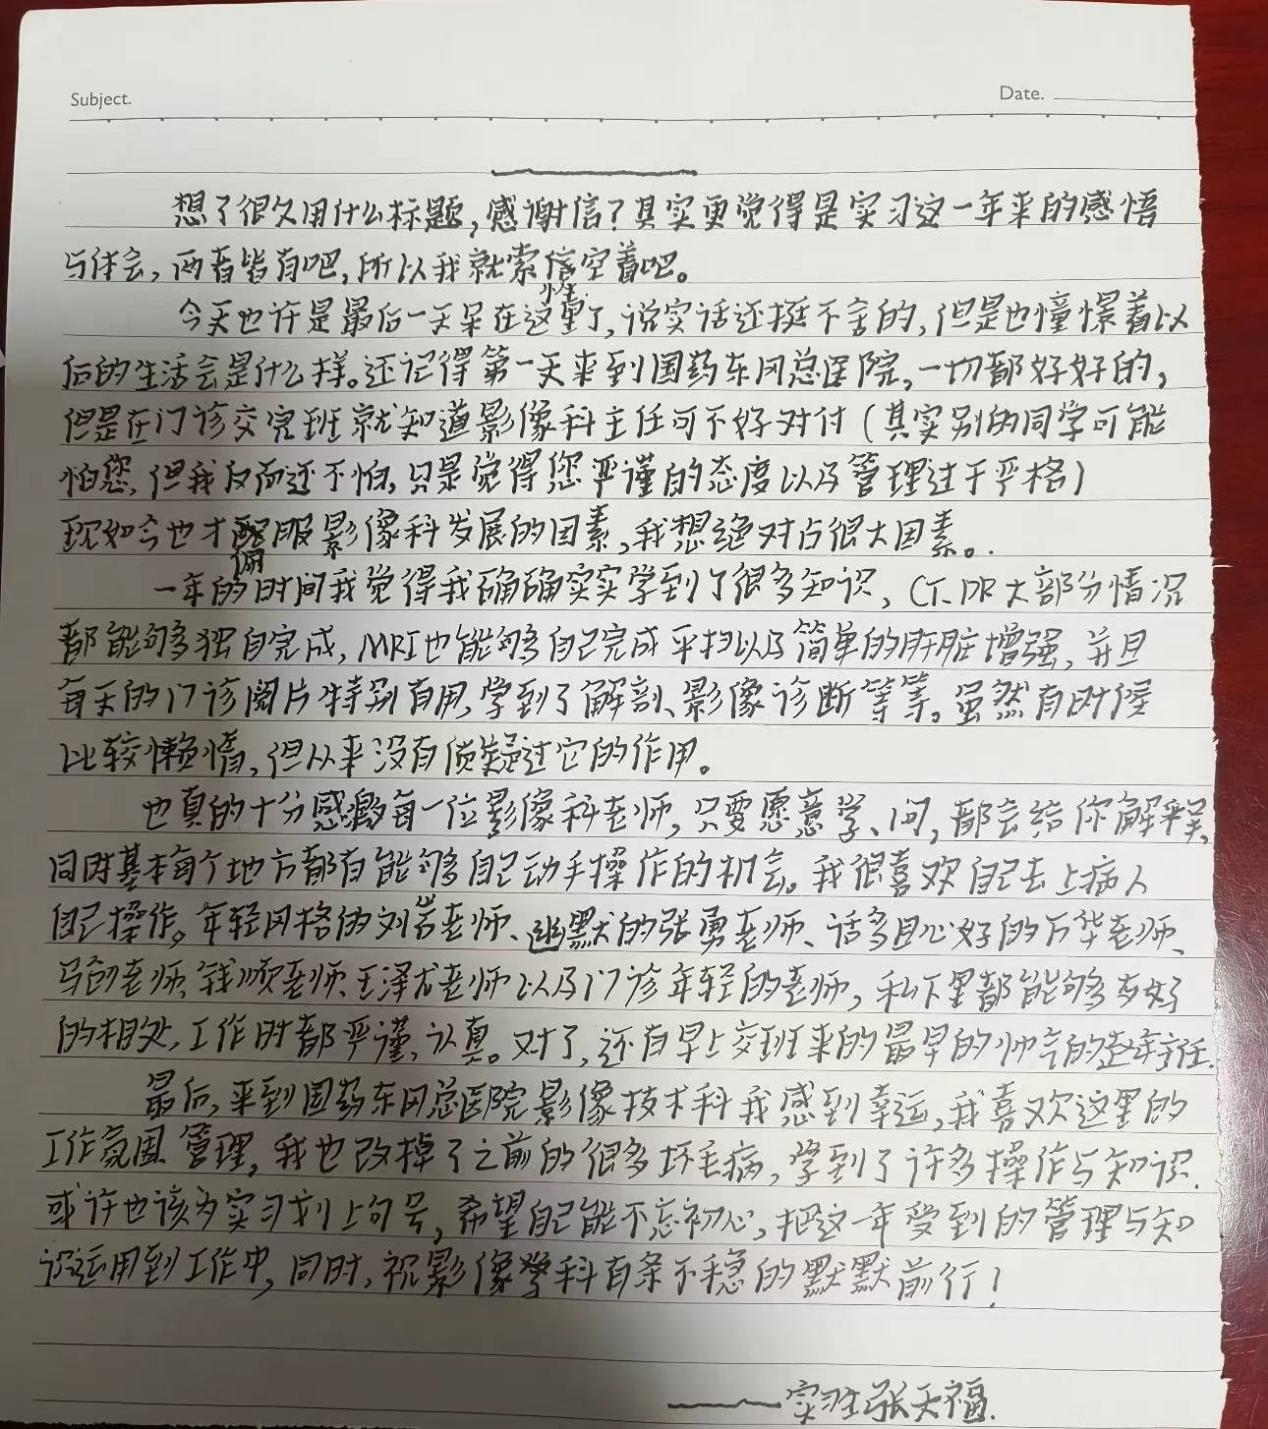 Subject.
Date.
想了很久用什么标题,感谢信?其实更觉得是实习这一年来的感悟
与体会,两者皆有吧,所以我就索性空着吧。
今天也许是最后一天呆在这里了,说实话还挺不舍的,但是也憧憬着以
后的生活会是什么样。还记得第一天来到国药东风总医院,一切都好好的,
但是在门诊交完班就知道影像科主任可不好对付(其实别的同学可能
怕您,但我反而还不怕,只是觉得您严谨的态度以及管理过于严格)
现如今也才佩服影像科发展的因素,我想绝对占很大因素。
一年的时间我觉得我确确实实学到了很多知识,CT、DR大部分情况
都能够独自完成,MRI也能够自己完成平扫以及简单的肝脏增强,并且
每天的门诊阅片特别有用,学到了解剖、影像诊断等等。虽然有时候
比较懒惰,但从来没有质疑过它的作用。
也真的十分感激每一位影像科老师,只要愿意学、问,都会给你解释,
同时基本每个地方都有能够自己动手操作的机会。我很喜欢自己去上病人
自己操作。年轻风格的刘岩老师、幽默的张勇老师、话多且心好的万华老师、
马创老师、钱顺老师、王泽尤老师以及门诊年轻的老师,私下里都能够友好
的相处,工作时都严谨,认真。对了,还有早上交班来的最早的帅气的主任.
最后,来到国药东风总医院影像技术科我感到幸运,我喜欢这里的
工作氛围 管理,我也改掉了之前的很多坏毛病,学到了许多操作与知识.
或许也该为实习划上句号,希望自己能不忘初心,把这一年受到的管理与知
识运用到工作中,同时,祝影像学科有条不稳的默默前行!
——实习生张天福.